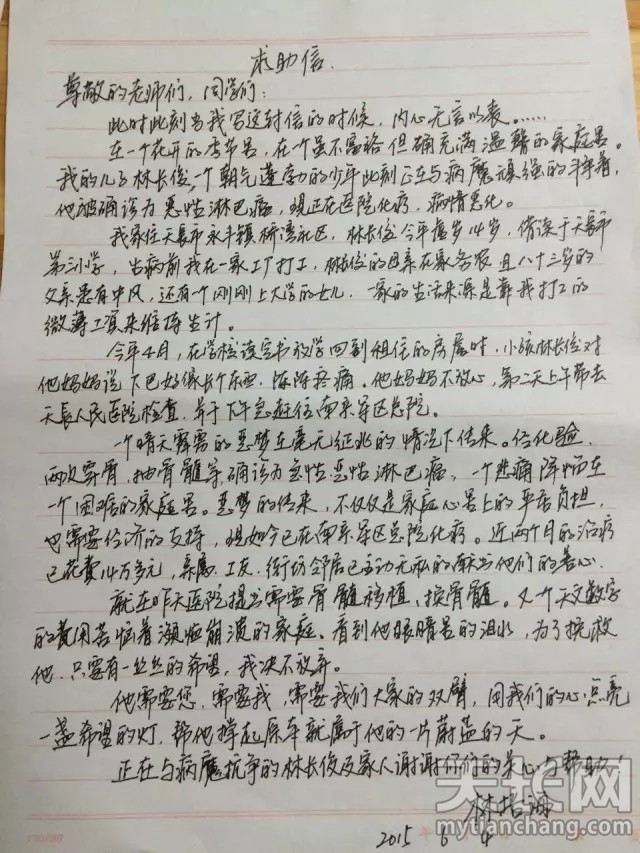 求助信.
尊敬的老师们，同学们：
此时此刻当我写这封信的时候，内心无言以表。……
在一个花开的季节里，在一个虽不富裕但确充满温馨的家庭里。
我的儿子林长俊，一个朝气蓬勃的少年此刻正在与病魔顽强的斗争着，
他被确诊为恶性淋巴癌，现正在医院化疗，病情恶化。
我家住天长市永丰镇桥湾社区，林长俊今年虚岁14岁，借读于天长市
第三小学，当病前我在一家工厂打工，林长俊的母亲在家务农且八十三岁的
父亲患有中风，还有一个刚刚上大学的女儿，一家的生活来源是靠我打工的
微薄工资来维持生计。
今年4月，在学校读完书放学回到租住的房屋时，小孩林长俊对
他妈妈说下巴好像长个东西，阵阵疼痛。他妈妈不放心，第二天上午带去
天长人民医院检查，并于下午急赶往南京军区总院。
一个晴天霹雳的恶梦在毫无征兆的情况下传来。经化验，
两次穿骨，抽骨髓等确诊为急性恶性淋巴癌。一个悲痛降临在
一个困难的家庭里。恶梦的传来，不仅仅是家庭心里上的承舌负担，
也需要经济的支持，现如今已在南京军区总院化疗。近两个月的治疗
已花费14万多元，亲属、工友、街坊邻居已主动无私的献出他们的善心.
就在昨天医院提出需要骨髓移植，换骨髓。又一个天文数字
的费用苦恼着濒临崩溃的家庭。看到他眼睛里的泪水，为了挽救
他，只要有一丝丝的希望，我决不放弃。
他需要您，需要我，需要我们大家的双臂，用我们的心点亮
一盏希望的灯，帮他撑起原本就属于他的一片蔚蓝的天。
正在与病魔抗争的林长俊及家人谢谢你们的关心与帮助！
林培海
2015 6 4
天长网
mytianchang.com